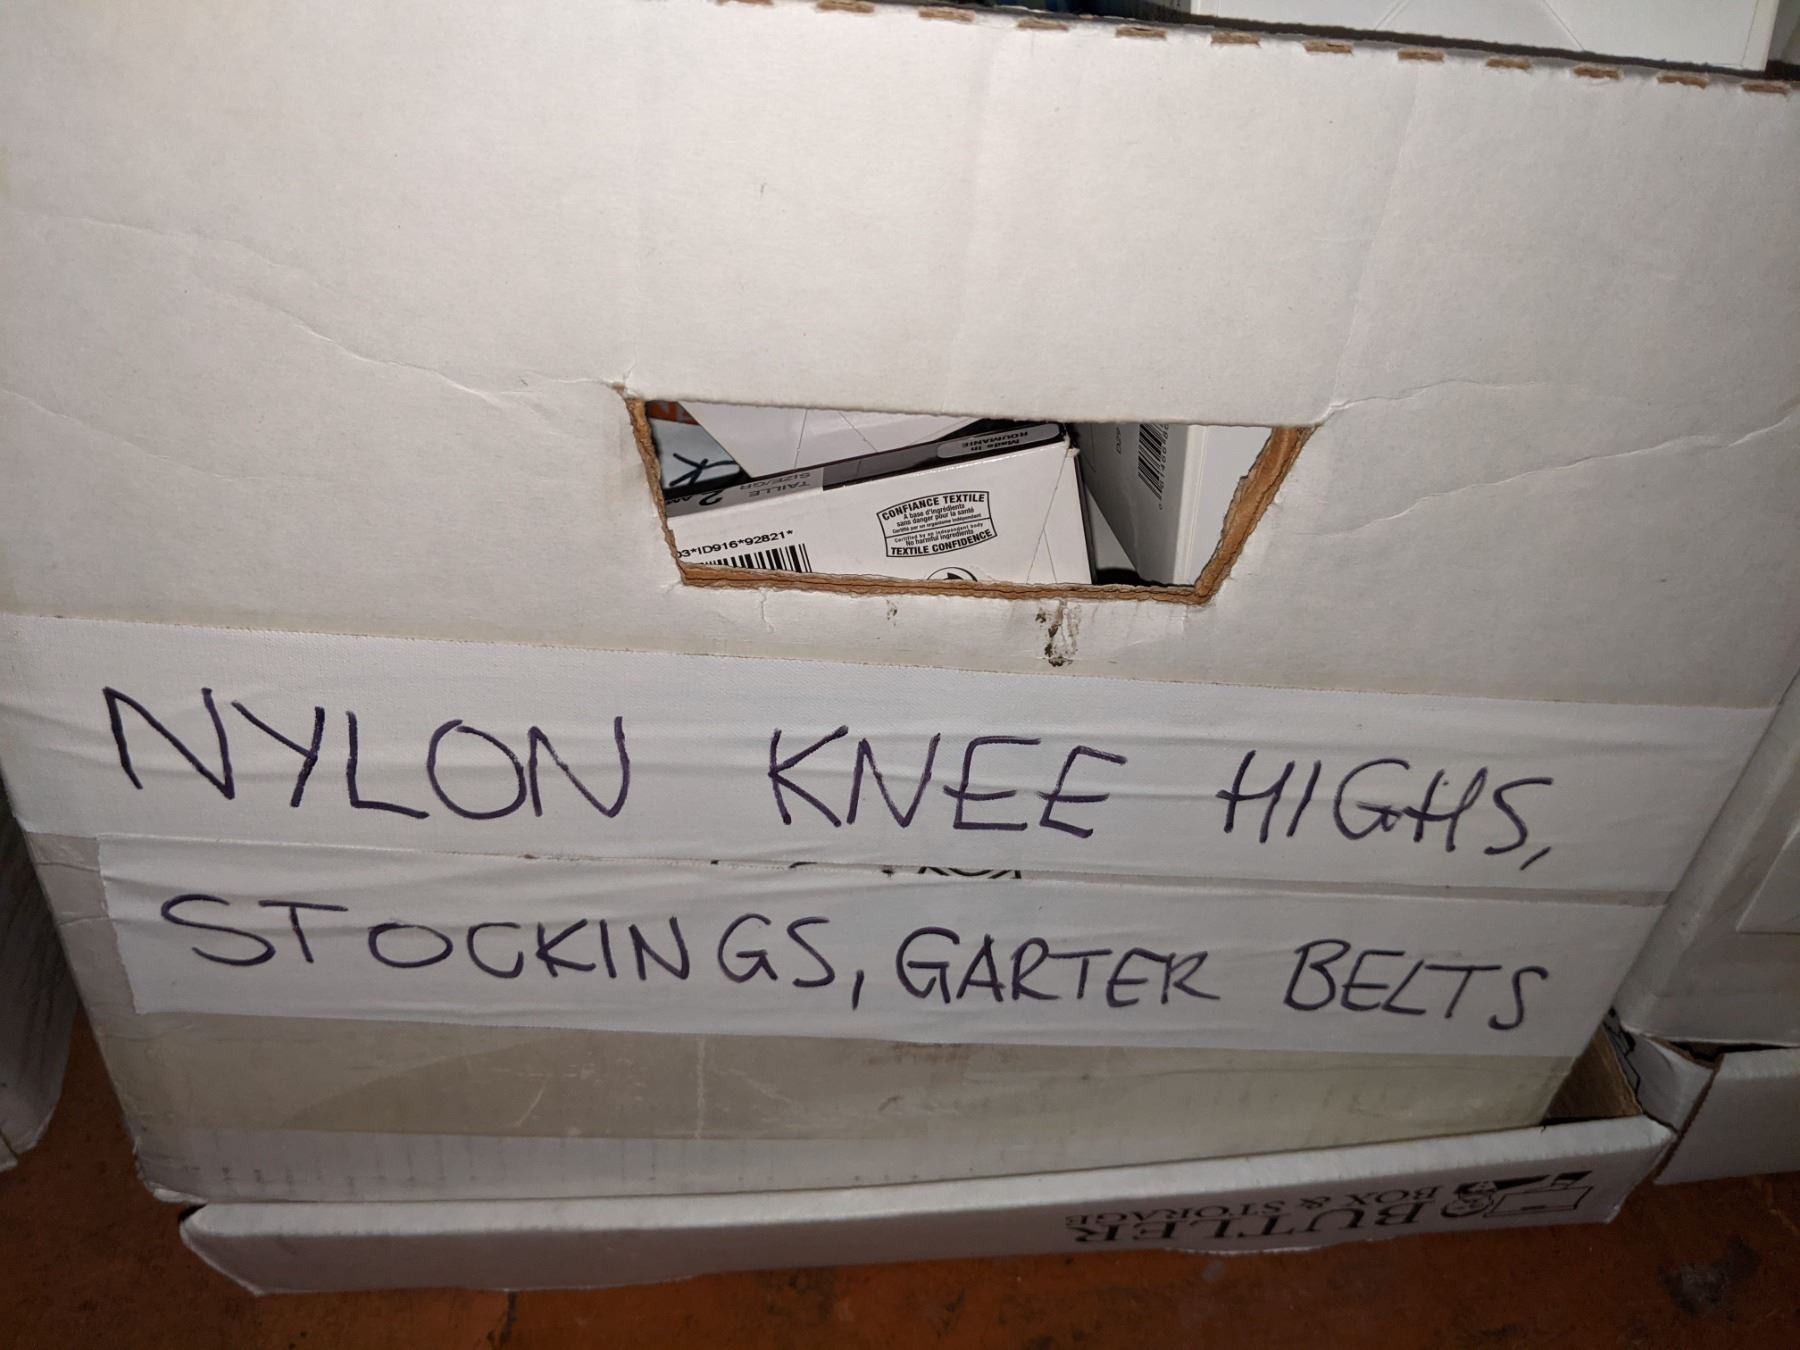 Made in
ROUMANIE
TAILLE
SIZE/GR
2
03*ID916*92821*
CONFIANCE TEXTILE
A base d'ingrédients
sans danger pour la santé
Certifié par un organisme indépendant
Certified by an independent body
No harmful ingredients
TEXTILE CONFIDENCE
NYLON KNEE HIGHS,
STOCKINGS, GARTER BELTS
BUTLER
BOX & STORAGE